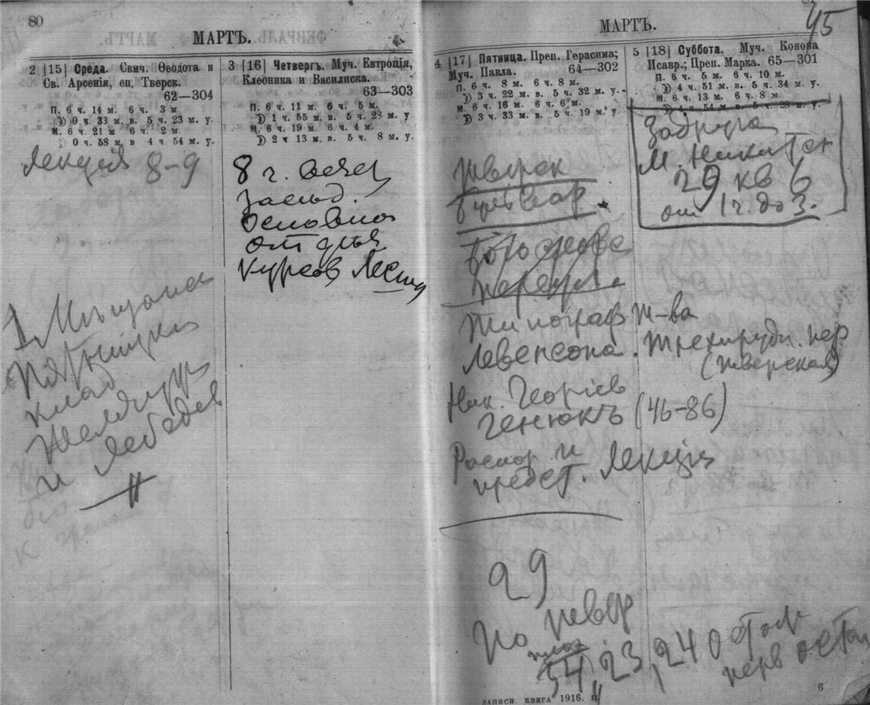 80
МАРТЪ.
2 |15| Среда. Свмч. Ѳеодота и
Св. Арсенія, еп. Тверск.
62—304
П. 6 ч. 14 м. 6 ч. 3 м
☽ 0 ч. 33 м. в. 5 ч. 23 м. у.
М. 6 ч. 21 м 6 ч. 2 м
0 ч. 58 м. в 4 ч 54 м. у.
Лекция 8-9
I Мѣщанск
Пятницки
клад
и Лебедев
3 |16| Четверг. Муч. Евтропія,
Клеоника и Василиска.
63—303
П. 6 ч. 11 м. 6 ч. 5 м.
☽ 1 ч. 55 м. в. 5 ч. 23 м у
М. 6 ч. 19 м. 6 ч. 4 м.
☽ 2 ч 13 м. в. 5 ч. 8 м. у.
8 г. вечер
засѣд.
Основна
отдѣл
курсов
45
МАРТЪ.
4 |17| Пятница. Преп. Герасима;
Муч. Павла.
64—302
П. 6 ч. 8 м. 6 ч. 8 м.
☽ 3 ч. 22 м. в. 5 ч. 32 м. у.
М. 6 ч. 16 м. 6 ч. 6 м.
☽ 3 ч. 33 м. в. 5 ч. 19 м. у.
Тверск
бульвар.
Типограф Т-ва
Левенсона. Трехпрудн. пер
(Тверская)
Ник. Георгіев
Генюкъ (46-86)
и
предст. Лекціи
29
По
54, 23, 24 Остол
перв остол
5 |18| Суббота. Муч. Конона
Исавр.; Преп. Марка. 65—301
П. 6 ч. 5 м. 6 ч. 10 м.
☽ 4 ч. 51 м. в. 5 ч. 34 м. у.
М. 6 ч. 13 м. 6 ч. 8 м.
Задруга
М. Никитск
29 кв 6
от 1 г. до 3.
ЗАПИСН КНИГА 1916. П.
6